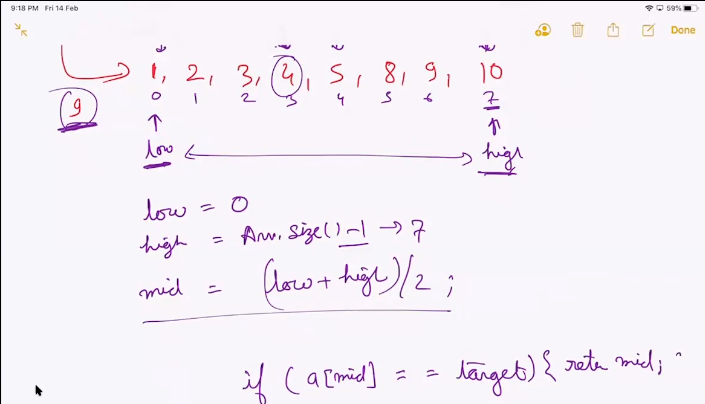 9:18 PM Fri 14 Feb 59%
Done
1, 2, 3, 4, 5, 8, 9, 10
9 0 1 2 3 4 5 6 7
low high
low = 0
high = Arr. size() - 1 → 7
mid = (low + high) / 2 ;
if ( a[mid] = = target) { retur mid;